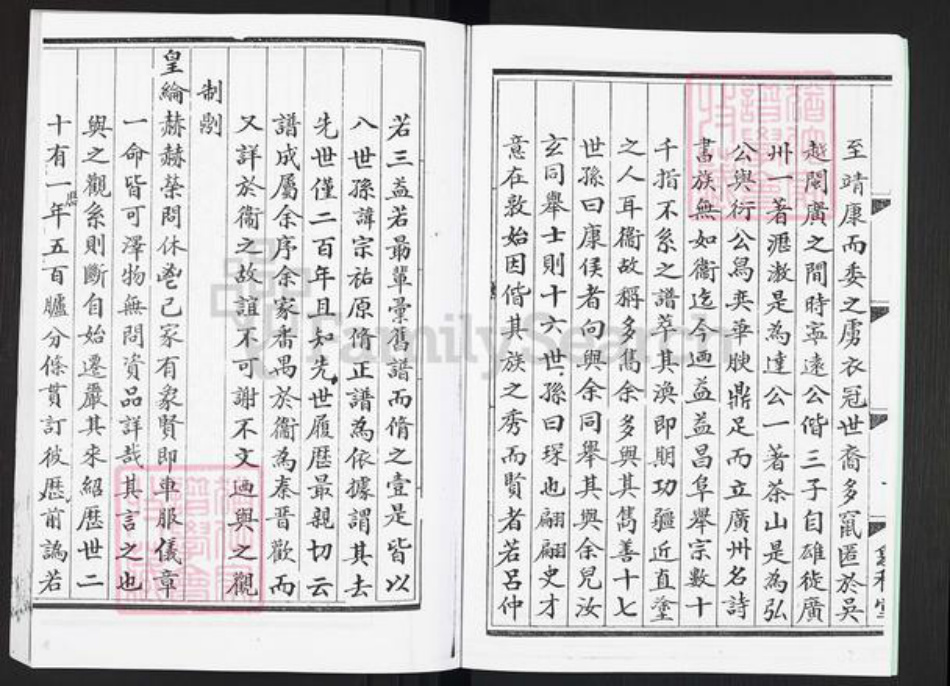 至靖康而委之虜衣冠世裔多竄匿於吳
越閩廣之間時寧遠公偕三子自雄徙廣
州一著瀝滘是為達公一著茶山是為弘
公與衍公鳥奕華腴鼎足而立廣州名詩
書族無如衞迄今迺益益昌阜舉宗數十
千指不系之譜萃其渙即期功疆近直塗
之人耳衞故稱多雋余多與其雋善十七
世孫曰康侯者向與余同舉其與余兒汝
玄同舉士則十六世孫曰琛也翩翩史才
意在敦始因偕其族之秀而賢者若呂仲
若三益若最輩彙舊譜而脩之壹是皆以
八世孫諱宗祐原脩正譜為依據謂其去
先世僅二百年且知先世履歷最親切云
譜成屬余序余家番禺於衞為秦晉歡而
又詳於衞之故誼不可謝不文迺與之觀
制
皇綸赫赫榮問休鬯已家有象賢即車服儀章
一命皆可澤物無問資品詳哉其言之也
與之觀系則斷自始遷嚴其來紹歷世二
十有一年五百臚分條貫訂彼歷前譌若
FamilySearch